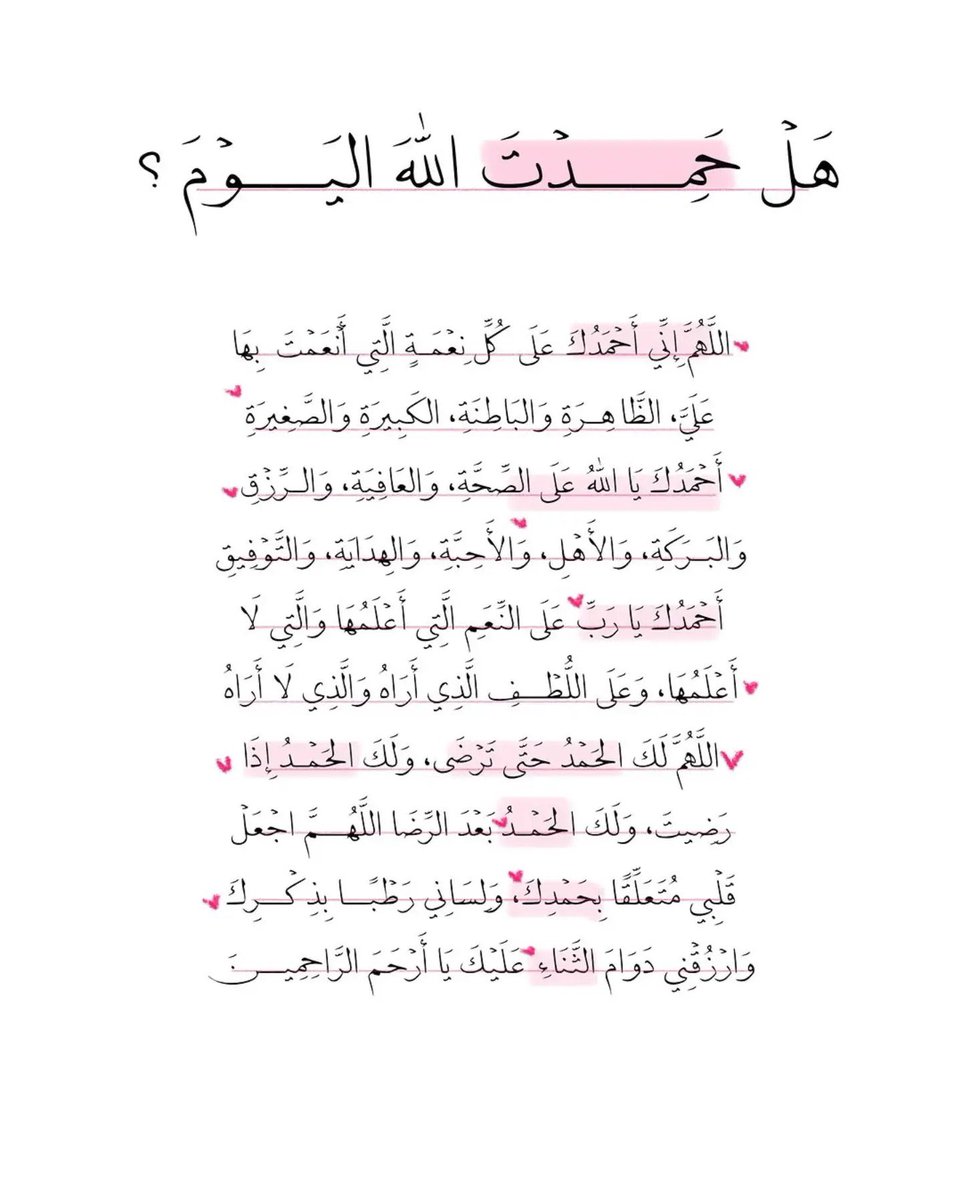 هَلْ حَمِدْتَ اللّٰهَ اليَوْمَ ؟
اللَّهُمَّ إِنِّي أَحْمَدُكَ عَلَى كُلِّ نِعْمَةٍ الَّتِي أَنْعَمْتَ بِهَا
عَلَيَّ، الظَّاهِرَةِ وَالبَاطِنَةِ، الكَبِيرَةِ وَالصَّغِيرَةِ
أَحْمَدُكَ يَا اللّٰهُ عَلَى الصِّحَّةِ، وَالعَافِيَةِ، وَالرِّزْقِ
وَالبَرَكَةِ، وَالأَهْلِ، وَالأَحِبَّةِ، وَالهِدَايَةِ، وَالتَّوْفِيقِ
أَحْمَدُكَ يَا رَبِّ عَلَى النِّعَمِ الَّتِي أَعْلَمُهَا وَالَّتِي لَا
أَعْلَمُهَا، وَعَلَى اللُّطْفِ الَّذِي أَرَاهُ وَالَّذِي لَا أَرَاهُ
اللَّهُمَّ لَكَ الحَمْدُ حَتَّى تَرْضَى، وَلَكَ الحَمْدُ إِذَا
رَضِيتَ، وَلَكَ الحَمْدُ بَعْدَ الرِّضَا اللَّهُمَّ اجْعَلْ
قَلْبِي مُتَعَلِّقًا بِحَمْدِكَ، وَلِسَانِي رَطْبًا بِذِكْرِكَ
وَارْزُقْنِي دَوَامَ الثَّنَاءِ عَلَيْكَ يَا أَرْحَمَ الرَّاحِمِينَ